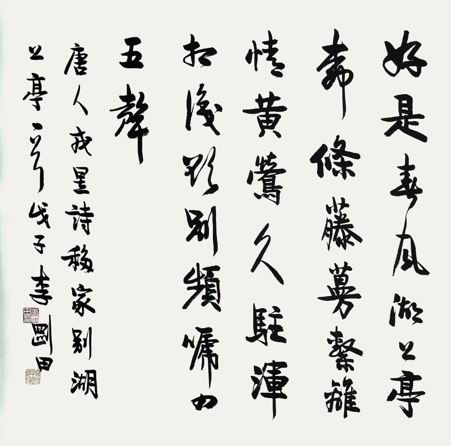 好是春風湖上亭
柳條藤蔓繫離
情黃鶯久駐渾
相識欲別頻嗁四
五聲
唐人戎昱詩移家別湖
上亭一首戊子李剛田